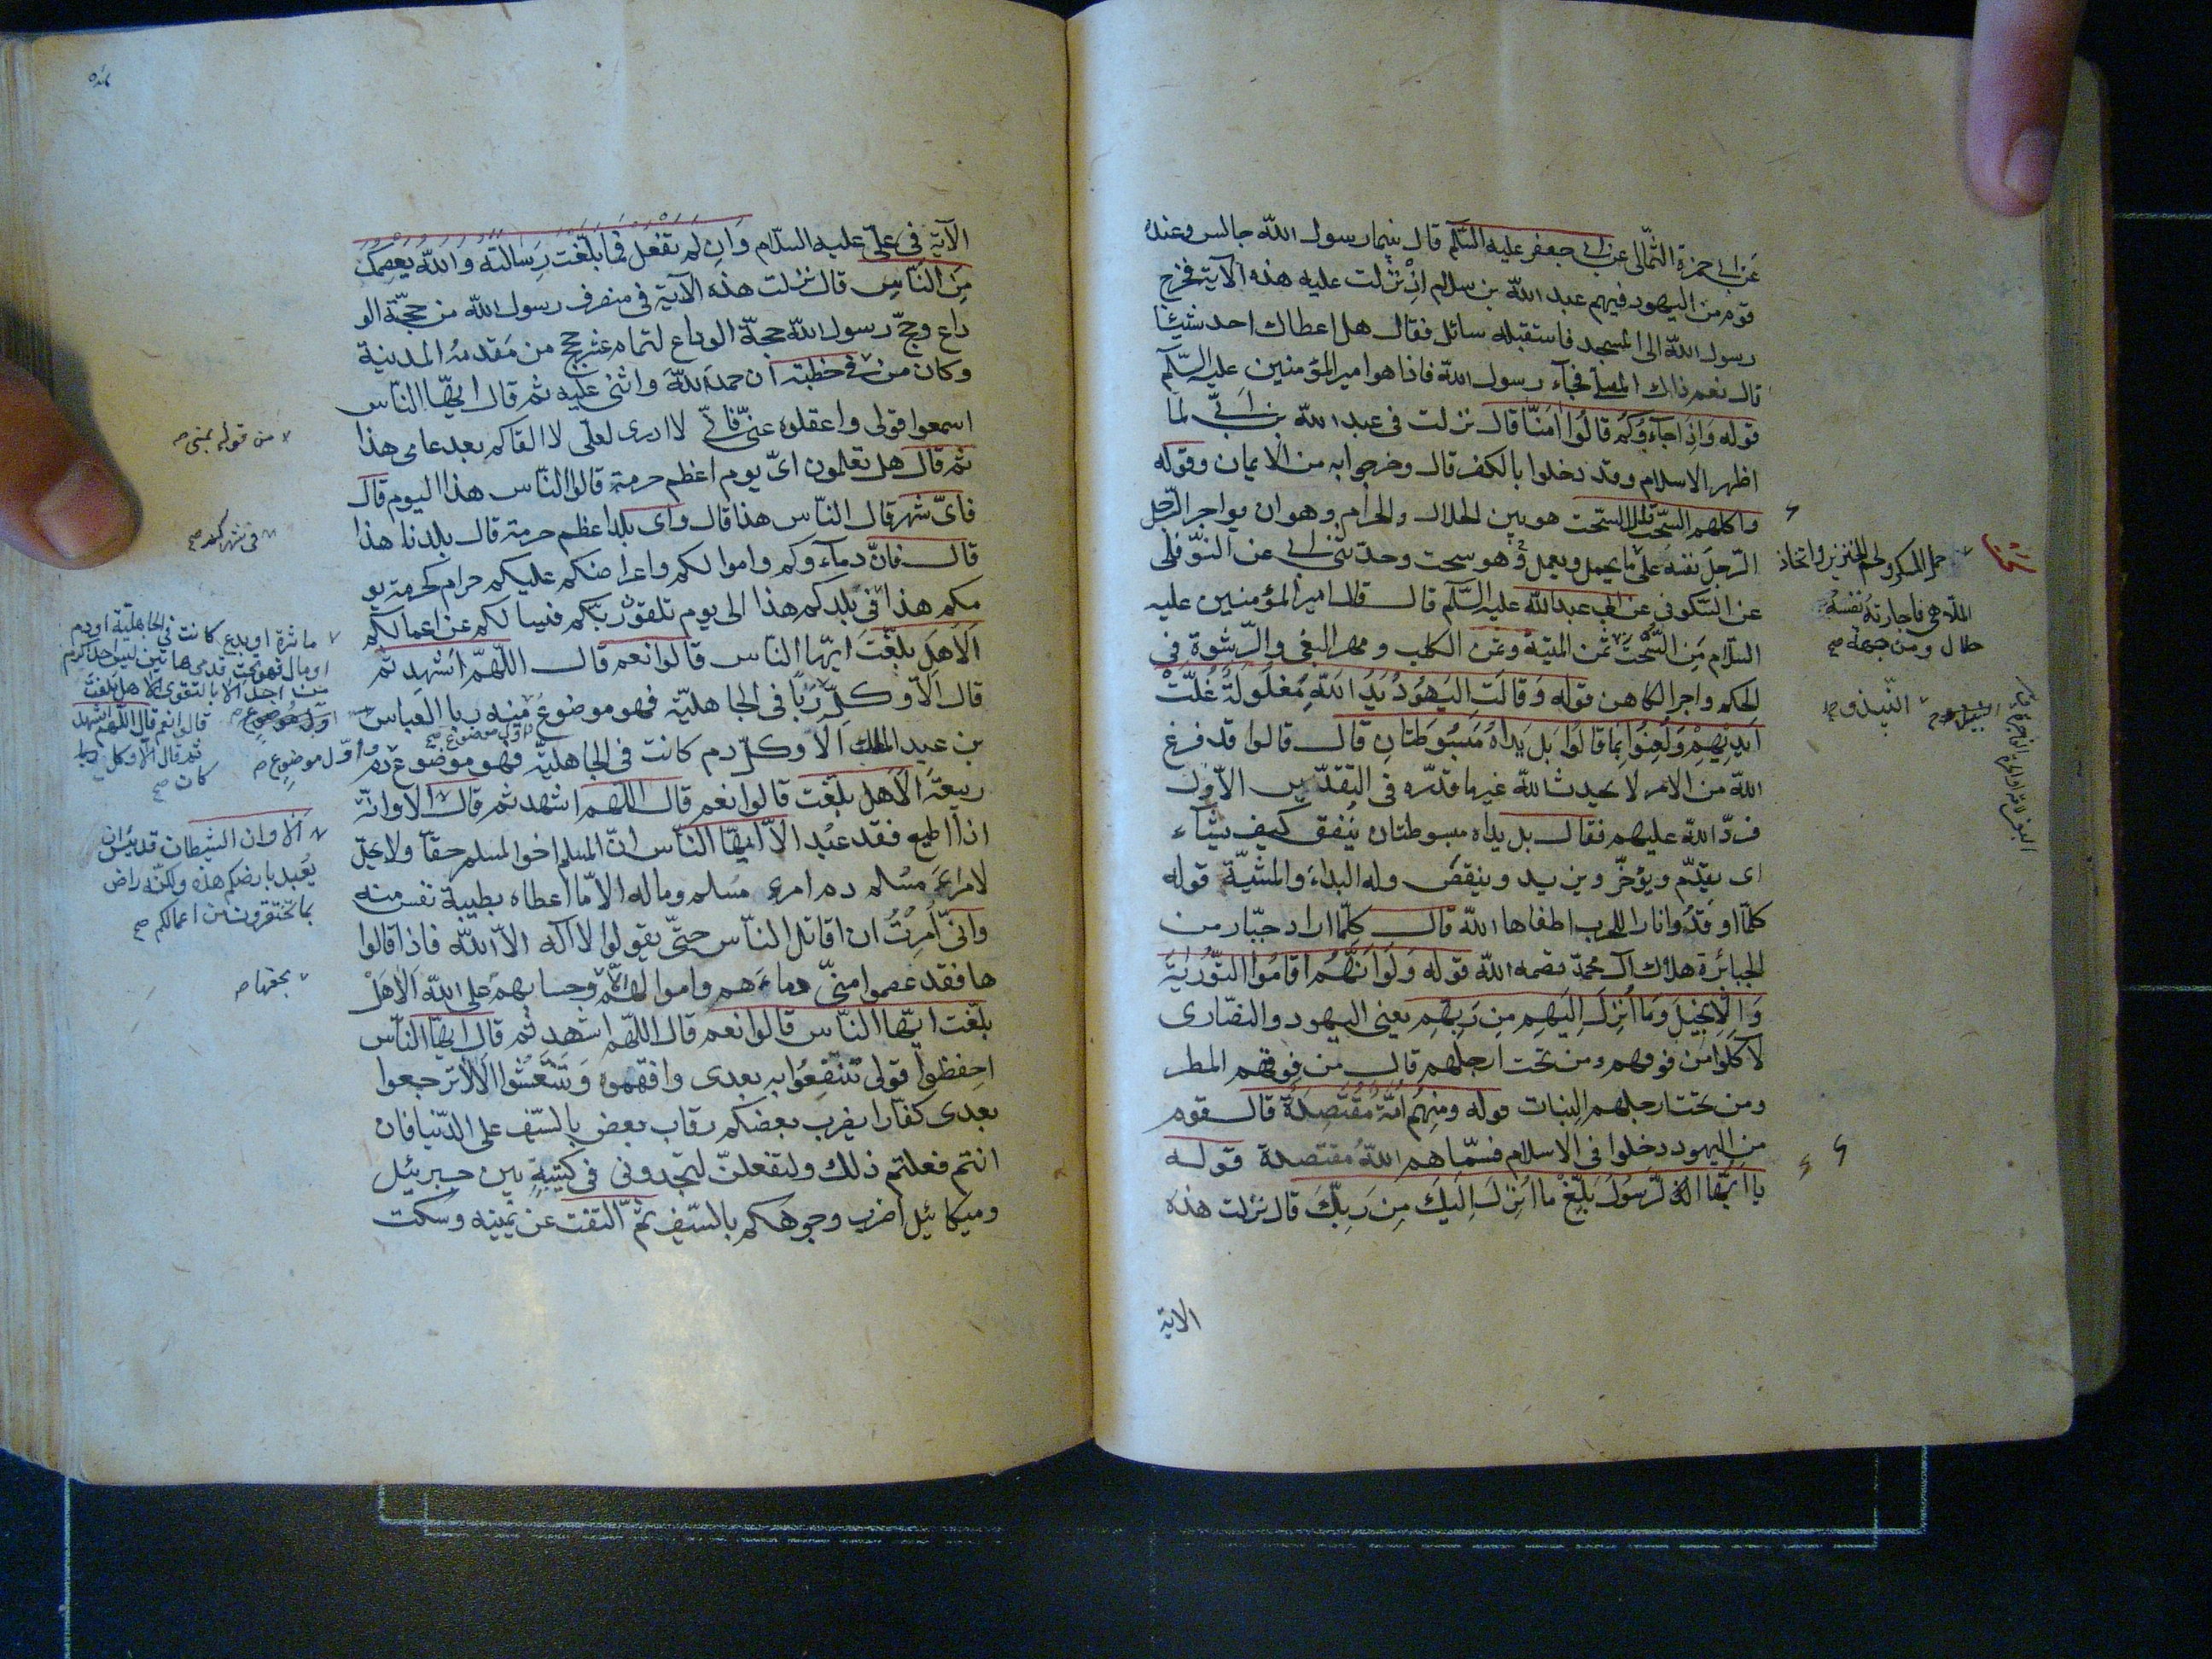 عن ابي حمزة الثمالى عن ابي جعفر عليه السّلم قال بينما رسول الله جالس وعنده
قوم من اليهود فيهم عبد الله بن سلام اذ نزلت عليه هذه الآية فخرج
رسول الله الى المسجد فاستقبله سائل فقال هل اعطاك احد شيئا
قال نعم ذاك المصلي فجآء رسول الله فاذا هو امير المؤمنين عليه السّلم
قوله وَاِذا جآءوكم قالُوا امَنّا قال نزلت فى عبد الله بن اُبيّ لما
اظهر الاسلام وقد دخلوا بالكفر قال وخرجوا به من الايمان وقوله
واكلهم السّحت قال السّحت هو بين الحلال والحرام وهو ان يواجر الرّجل
الرّجل نفسه على ما يحمل ويعمل فهو سحت وحدّثنى ابي عن النوّفلى
عن السّكونى عن ابي عبد الله عليه السّلم قال قال امير المؤمنين عليه
السّلام مِن السُّحْتِ ثمن الميتة وثمن الكلب ومهر البغى والرّشوة فى
الحكم واجر الكاهن قوله وَقالَت اليَهُودُ يَدُ اللهِ مَغْلُولَةٌ غُلَّتْ
اَيْدِيْهِمْ وَلُعِنُوا بِمَا قالُوا بَل يَداهُ مَبْسُوطَتانِ قال قالوا قد فرغ
الله من الامر لا يحدث الله غير ما قدّره فى التقدير الاوّل
فردّ الله عليهم فقال بل يداه مبسوطتان يُنفق كيف يشآء
اى يقدّم ويؤخّر ويزيد وينقص وله البداءَ والمشيّة قوله
كلّما اوقدُوا نارا للحرب اطفاها الله قال كلّما اراد جبّار من
الجبائرة هلاك آل محمدّ قصمه الله قوله وَلَوْ اَنَّهُم اقامُوا التَّوْريٰةَ
وَالْاِنْجِيلَ وَما اُنْزِلَ اِلَيهِم مِن رَبِّهِم يعنى اليهود والنصّارى
لَاَكَلُوا مِن فوقهم ومن تحت ارجلهم قال من فوقهم المطر
ومن تحت ارجلهم النبات قوله ومِنهُم اُمَّةٌ مُقْتَصِدَةٌ قال قوم
من اليهود دخلوا فى الاسلام فسمّاهم اللهُ مقتصدة قوله
يا ايّها الرّسولُ بَلِّغْ ما اُنْزِلَ اِلَيكَ مِن رَبِّكَ قال نزلت هذه
حمل المسكر ولحم الخنزير واتخاذ
الملاهى فاجارته نفسَهُ
حلال ومن جهة صح
النّبيذ و صح
الاية
الآية فى علىّ عليه السّلام وَاِن لم تفعل فما بلّغت رسالته والله يعصمك
مِن النّاسِ قال نزلت هذه الآية فى منصرف رسول الله من حجّة الو
داع وحجّ رسول الله حجّة الوداع لتمام عشر حجج من مقدمه المدينة
وكان من فى خطبته ان حمدَ الله واثنى عليه ثم قال ايهّا النّاس
اسمعوا قولى واعقلوه عنّى فانّى لا ادرى لعلّى لا القاكم بعد عامى هذا
ثم قال هل تعلمون اىّ يوم اعظم حرمة قالوا النّاس هذا اليوم قال
فاىّ شهر قال النّاس هذا قال واى بلد اعظم حرمة قال بلدنا هذا
قال فانّ دمآءوكم واموالكم واعراضكم عليكم حرام كحرمة يو
مكم هذا فى بلدكم هذا الى يوم تلقون ربّكم فيسالكم عن اعمالكم
اَلَا هَل بلّغْتَ ايّها النّاس قالوا نعم قال اللّهمّ اشهد ثم
قال اَلَا وكلّ رباً فى الجاهليّة فهو موضوعٌ منه ربا العباس
بن عبد المطلب الا وكلّ دم كانت فى الجاهليّة فهو موضوع دم
ربيعة اَلَا هل بلّغت قالوا نعم قال اللهم اشهد ثم قال الا وانّه
اذا اطيع فقد عبد الا ايهّا النّاس انّ المسلم اخوا المسلم حقّا ولا يحل
لامرءٍ مسلم دم امرءٍ مسلم وماله الا ما اعطاه بطيبة نفس منه
وانّى اُمِرْتُ ان اقاتل النّاس حتّى يقولوا لا اله الا الله فاذا قالوا
ها فقد عصموا منّى دماءَهم واموالهم الّا وحسابهم على الله اَلَا هَلْ
بلّغت ايّها النّاس قالوا نعم قال اللّهم اشهد ثم قال ايهّا النّاس
احفظوا قولى تَنْتَفِعُوا به بعدى وافهموه وَتَنْعَشُوا اَلَا لا ترجعوا
بعدى كفّارا يضرب بعضكم رقاب بعض بالسّيف على الدّنيا فان
انتم فعلتم ذلك ولتفعلنّ لتجدونى فى كتيبةٍ بين جبرئيل
وميكائيل اضرب وجوهكم بالسّيف ثمّ التفت عن يمينه وسكت
من قوله بمنى صح
ماثرة او بدع كانت فى الجاهليّة او دم
او مال فهو تحت قدمى هاتين ليس احد اكرم
من احد الا بالتقوى الا هل بلغت
قالوا نعم قال اللّهم اشهد
ثم قال الا وكل ربا
كان صح
اوّل موضوع صح
الا وان الشيطان قد يئس ان
يُعبد بارضكم هذه ولكنّه راض
بما تحتقرون من اعمالكم صح
بحقها صح